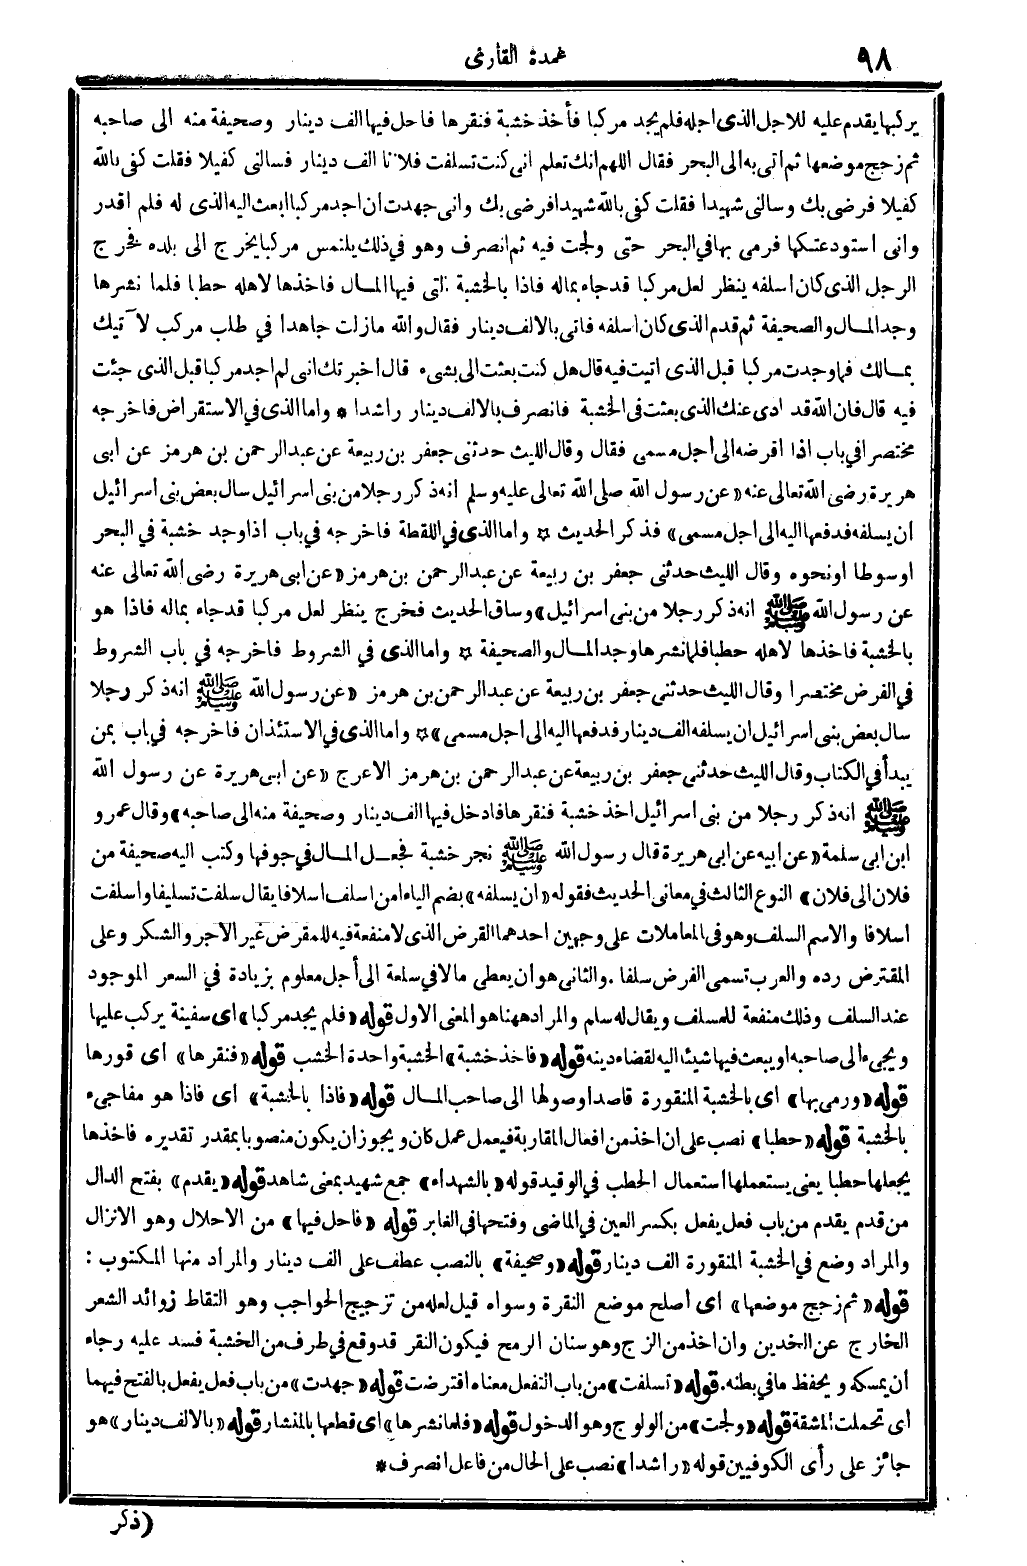 ٩٨
عمدة القارئ
يركبها يقدم عليه للاجل الذى اجله فلم يجد مركبا فأخذ خشبة فنقرها فاحل فيها الف دينار وصحيفة منه الى صاحبه
ثم زجج موضعها ثم اتى به الى البحر فقال اللهم انك تعلم انى كنت تسلفت فلانا الف دينار فسالنى كفيلا فقلت كفى بالله
كفيلا فرضى بك وسالنى شهيدا فقلت كفى بالله شهيدا فرضى بك وانى جهدت ان اجد مركبا ابعث اليه الذى له فلم اقدر
وانى استودعتكها فرمى بها فى البحر حتى ولجت فيه ثم انصرف وهو فى ذلك يلتمس مركبا يخرج الى بلده فخرج
الرجل الذى كان اسلفه ينظر لعل مركبا قد جاء بماله فاذا بالخشبة التى فيها المال فاخذها لاهله حطبا فلما نشرها
وجد المال والصحيفة ثم قدم الذى كان اسلفه فاتى بالالف دينار فقال والله مازلت جاهدا فى طلب مركب لآتيك
بمالك فما وجدت مركبا قبل الذى اتيت فيه قال هل كنت بعثت الى بشىء قال اخبرتك انى لم اجد مركبا قبل الذى جئت
فيه قال فان الله قد ادى عنك الذى بعثت فى الخشبة فانصرف بالالف دينار راشدا * واما الذى فى الاستقراض فاخرجه
مختصرا فى باب اذا اقرضه الى أجل مسمى فقال وقال الليث حدثنى جعفر بن ربيعة عن عبدالرحمن بن هرمز عن ابى
هريرة رضى الله تعالى عنه «عن رسول الله صلى الله تعالى عليه وسلم انه ذكر رجلا من بنى اسرائيل سال بعض بنى اسرائيل
ان يسلفه فدفعها اليه الى اجل مسمى» فذكر الحديث ☆ واما الذى فى اللقطة فاخرجه فى باب اذا وجد خشبة فى البحر
او سوطا او نحوه وقال الليث حدثنى جعفر بن ربيعة عن عبدالرحمن بن هرمز «عن ابى هريرة رضى الله تعالى عنه
عن رسول الله ﷺ انه ذكر رجلا من بنى اسرائيل» وساق الحديث فخرج ينظر لعل مركبا قد جاء بماله فاذا هو
بالخشبة فاخذها لاهله حطبا فلما نشرها وجد المال والصحيفة ☆ واما الذى فى الشروط فاخرجه فى باب الشروط
فى القرض مختصرا وقال الليث حدثنى جعفر بن ربيعة عن عبدالرحمن بن هرمز «عن رسول الله ﷺ انه ذكر رجلا
سال بعض بنى اسرائيل ان يسلفه الف دينار فدفعها اليه الى اجل مسمى» ☆ واما الذى فى الاستئذان فاخرجه فى باب بمن
يبدأ فى الكتاب وقال الليث حدثنى جعفر بن ربيعة عن عبدالرحمن بن هرمز الاعرج «عن ابى هريرة عن رسول الله
ﷺ انه ذكر رجلا من بنى اسرائيل اخذ خشبة فنقرها فادخل فيها الف دينار وصحيفة منه الى صاحبه» وقال عمرو
ابن ابى سلمة «عن ابيه عن ابى هريرة قال رسول الله ﷺ نجر خشبة فجعل المال فى جوفها وكتب اليه صحيفة من
فلان الى فلان» النوع الثالث فى معانى الحديث فقوله «ان يسلفه» بضم الياء من اسلف اسلافا يقال سلفت تسليفا واسلفت
اسلافا والاسم السلف وهو فى المعاملات على وجهين احدهما القرض الذى لا منفعة فيه للمقرض غير الاجر والشكر وعلى
المقترض رده والعرب تسمى القرض سلفا . والثانى هو ان يعطى مالا فى سلعة الى أجل معلوم بزيادة فى السعر الموجود
عند السلف وذلك منفعة للمسلف ويقال له سلم والمراد ههنا هو المعنى الاول قوله «فلم يجد مركبا» اى سفينة يركب عليها
ويجىء الى صاحبه او يبعث فيها شيئا اليه لقضاء دينه قوله «فاخذ خشبة» الخشبة واحدة الخشب قوله «فنقرها» اى قورها
قوله «ورمى بها» اى بالخشبة المنقورة قاصدا وصولها الى صاحب المال قوله «فاذا بالخشبة» اى فاذا هو مفاجىء
بالخشبة قوله «حطبا» نصب على ان اخذ من افعال المقاربة فيعمل عمل كان ويجوز ان يكون منصوبا بمقدر تقديره فاخذها
يجعلها حطبا يعنى يستعملها استعمال الحطب فى الوقيد قوله «بالشهداء» جمع شهيد بمعنى شاهد قوله «يقدم» بفتح الدال
من قدم يقدم من باب فعل يفعل بكسر العين فى الماضى وفتحها فى الغابر قوله «فاحل فيها» من الاحلال وهو الانزال
والمراد وضع فى الخشبة المنقورة الف دينار قوله «وصحيفة» بالنصب عطف على الف دينار والمراد منها المكتوب :
قوله «ثم زجج موضعها» اى أصلح موضع النقرة وسواه قيل لعله من تزجيج الحواجب وهو التقاط زوائد الشعر
الخارج عن الخدين وان اخذ من الزج وهو سنان الرمح فيكون النقر قد وقع فى طرف من الخشبة فسد عليه رجاء
أن يمسكه ويحفظ ما فى بطنه . قوله «تسلفت» من باب التفعل معناه اقترضت قوله «جهدت» من باب فعل يفعل بالفتح فيهما
اى تحملت المشقة قوله «ولجت» من الولوج وهو الدخول قوله «فلما نشرها» اى قطعها بالمنشار قوله «بالالف دينار» هو
جائز على رأى الكوفيين قوله «راشدا» نصب على الحال من فاعل انصرف *
(ذكر